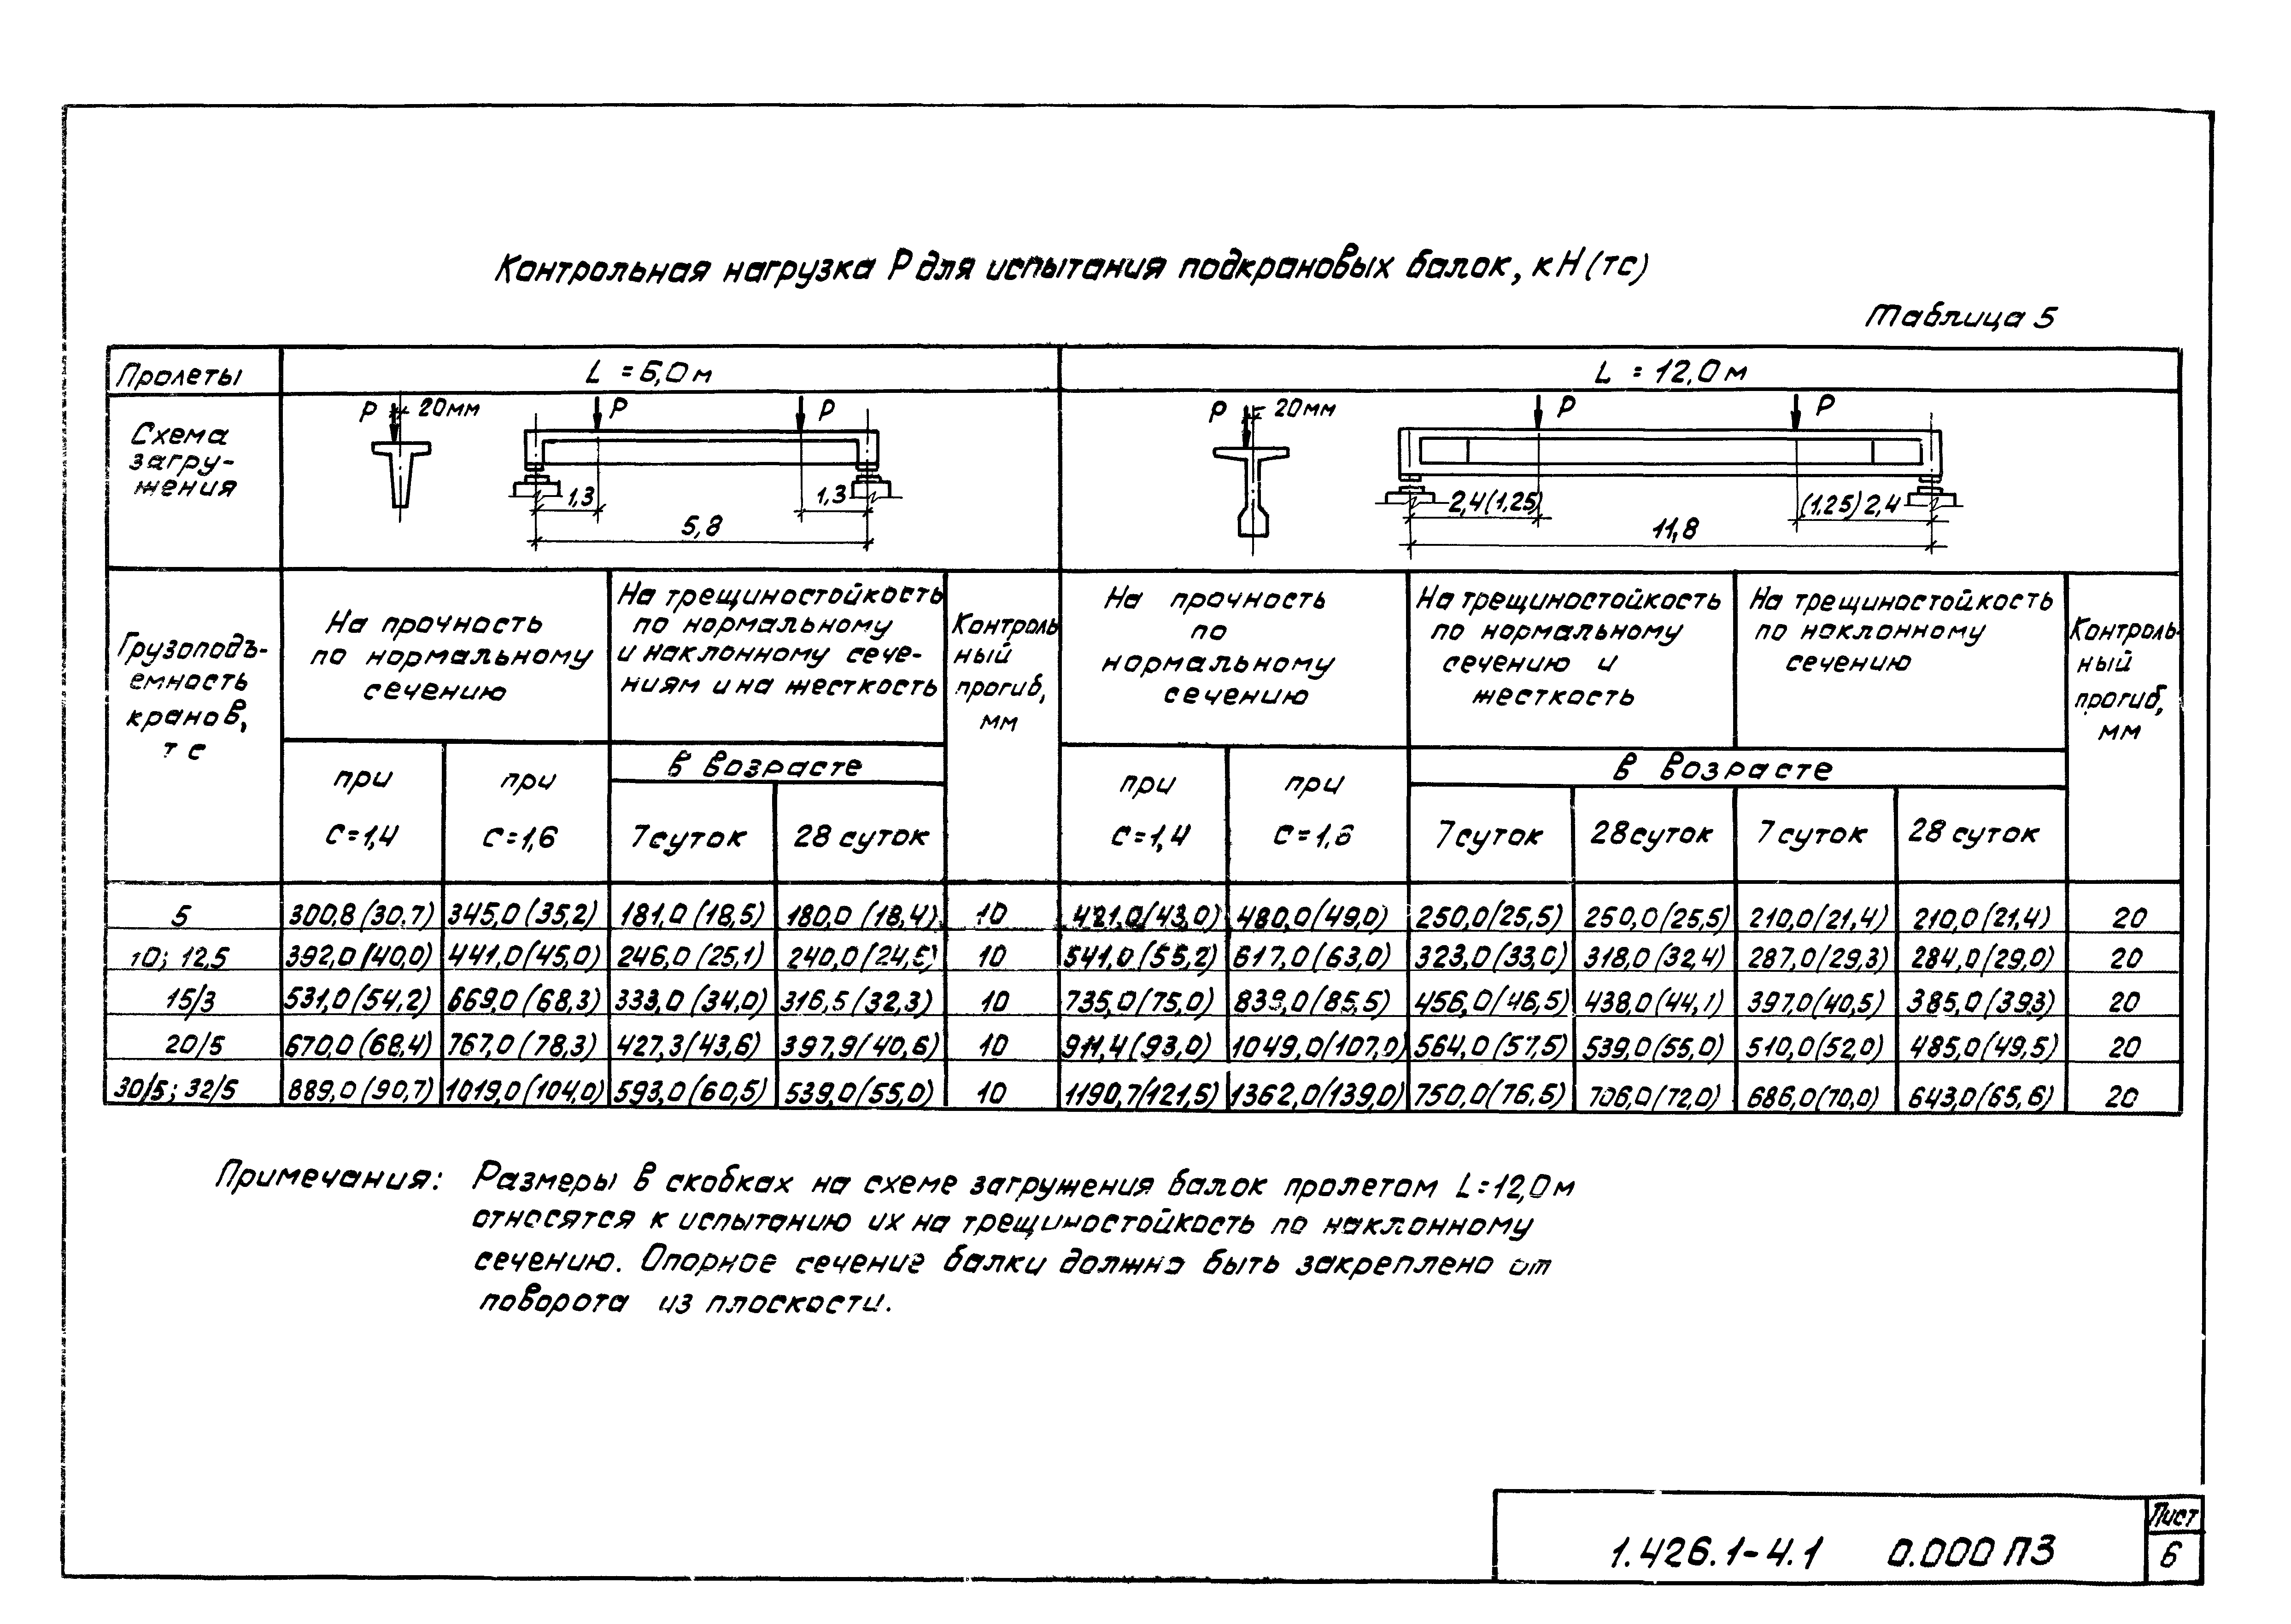 Контрольная нагрузка P для испытания подкрановых балок, кН (тс)
Таблица 5
Пролеты
L = 6,0 м
L = 12,0 м
Схема
загру-
жения
P 20мм
P P
1,3 1,3
5,8
P 20мм
P P
2,4(1,25) (1,25)2,4
11,8
Грузоподъ-
емность
кранов,
тс
На прочность
по нормальному
сечению
На трещиностойкость
по нормальному
и наклонному сече-
ниям и на жесткость
Контроль
ный
прогиб,
мм
На прочность
по
нормальному
сечению
На трещиностойкость
по нормальному
сечению и
жесткость
На трещиностойкость
по наклонному
сечению
Контроль-
ный
прогиб,
мм
при
С=1,4
при
С=1,6
в возрасте
7 суток
28 суток
при
С=1,4
при
С=1,6
в возрасте
7 суток
28 суток
7 суток
28 суток
5 300,8 (30,7) 345,0 (35,2) 181,0 (18,5) 180,0 (18,4) 10 421,0 (43,0) 480,0 (49,0) 250,0 (25,5) 250,0 (25,5) 210,0 (21,4) 210,0 (21,4) 20
10; 12,5 392,0 (40,0) 441,0 (45,0) 246,0 (25,1) 240,0 10 541,0 (55,2) 617,0 (63,0) 323,0 (33,0) 318,0 (32,4) 287,0 (29,3) 284,0 (29,0) 20
15/3 531,0 (54,2) 669,0 (68,3) 333,0 (34,0) 316,5 (32,3) 10 735,0 (75,0) 839,0 (85,5) 456,0 (46,5) 438,0 (44,1) 397,0 (40,5) 385,0 (39,3) 20
20/5 670,0 (68,4) 767,0 (78,3) 427,3 (43,6) 397,9 (40,6) 10 911,4 (93,0) 1049,0 (107,0) 564,0 (57,5) 539,0 (55,0) 510,0 (52,0) 485,0 (49,5) 20
30/5; 32/5 889,0 (90,7) 1019,0 (104,0) 593,0 (60,5) 539,0 (55,0) 10 1190,7 (121,5) 1362,0 (139,0) 750,0 (76,5) 706,0 (72,0) 686,0 (70,0) 643,0 (65,6) 20
Примечания: Размеры в скобках на схеме загружения балок пролетом L=12,0 м
относятся к испытанию их на трещиностойкость по наклонному
сечению. Опорное сечение балки должно быть закреплено от
поворота из плоскости.
1.426.1-4.1 0.000 ПЗ
Лист
6